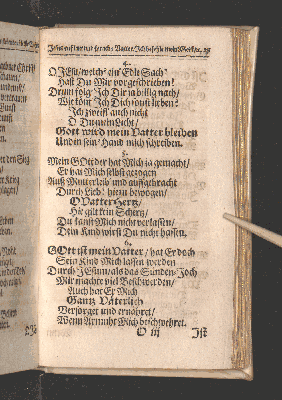 4.
O JEsu/ welch' ein Edle Sach'
Hast Du Mir vorgeschrieben!
Drum folg' Ich Dir ja billig nach/
Wie könt' Ich Dich sonst lieben?
Ich zweifl' auch nicht
O Du mein Licht/
Gott wird mein Vatter bleiben
Und in sein' Hand mich schreiben.
5.
Mein GOtt der hat Mich ja gemacht/
Er hat Mich selbst gezogen
Auß Mutterleib' und auffgebracht
Durch Lieb' hiezu bewogen/
O Vatter Hertz/
Hie gilt kein Schertz/
Du kanst Mich nicht verlassen/
Dein Kind wirst Du nicht hassen.
6.
GOtt ist mein Vatter/ hat Er doch
Sein Kind Mich lassen werden
Durch JEsum/ als das Sünden-Joch
Mir machte viel Beschwerden/
Auch hat Er Mich
Gantz Väterlich
Versorget und ernähret/
Wenn Armuht Mich beschwehret.
O iij Ist